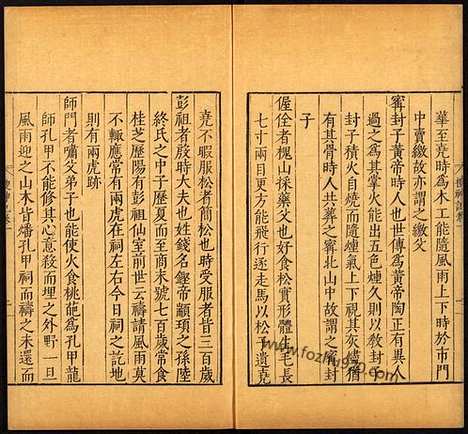 華至堯時為木工能隨風雨上下時於市門
中賣繳故亦謂之繳父
甯封子黃帝時人也世傳為黃帝陶正有異人
過之為其掌火能出五色煙久則以教封子
封子積火自燒而隨煙氣上下視其灰燼猶
有其骨時人共葬之甯北山中故謂之甯封
子
偓佺者槐山採藥父也好食松實形體生毛長
七寸兩目更方能飛行逐走馬以松子遺堯
堯不暇服松者簡松也時受服者皆三百歲
彭祖者殷時大夫也姓錢名鏗帝顓頊之孫陸
終氏之中子歷夏而至商末號七百歲常食
桂芝歷陽有彭祖仙室前世云禱請風雨莫
不輒應常有兩虎在祠左右今日祠之訖地
則有兩虎跡
師門者嘯父弟子也能使火食桃葩為孔甲龍
師孔甲不能修其心意殺而埋之外野一旦
風雨迎之山木皆燔孔甲祠而禱之未還而